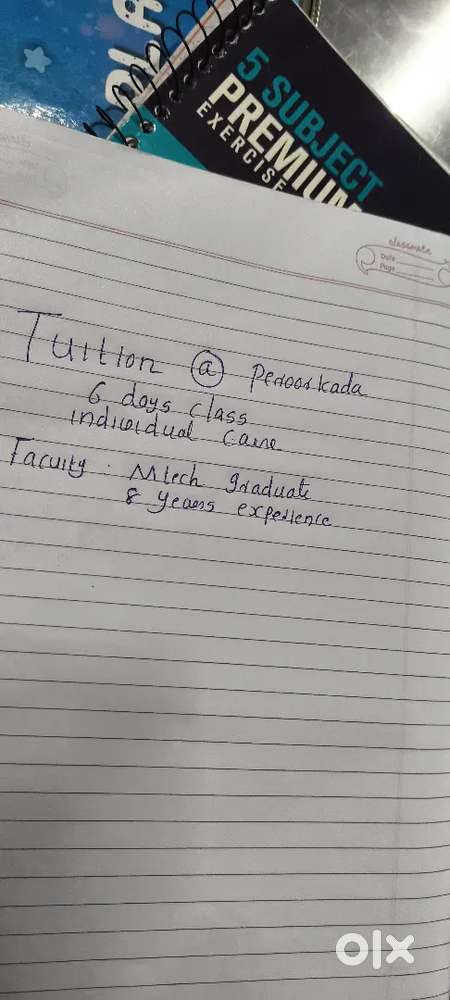 PLA
5 SUBJECT
PREMIUM
EXERCISE
classmate
Date
Page
Tuition @ Peroorkada
6 days class
individual care
Faculty : Mtech graduate
8 years experience
olx